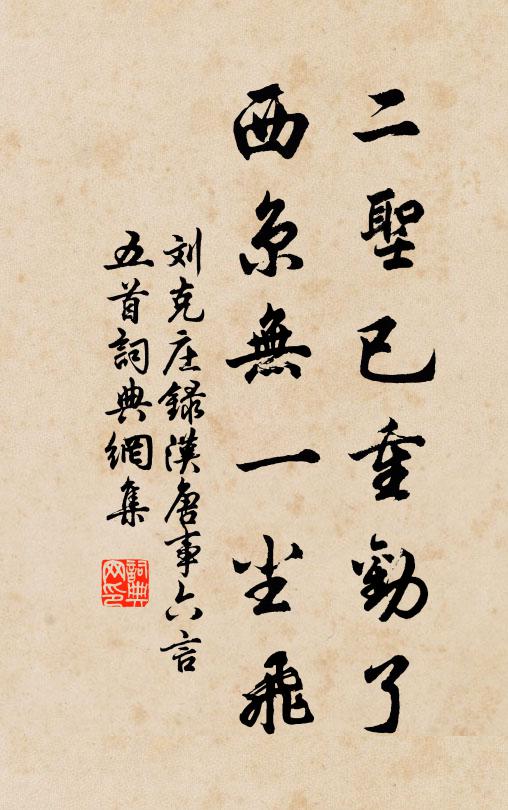 二聖已重勸了
西京無一尘飛
刘克庄録漢唐事六言
五首詞典網集
詞典
网印